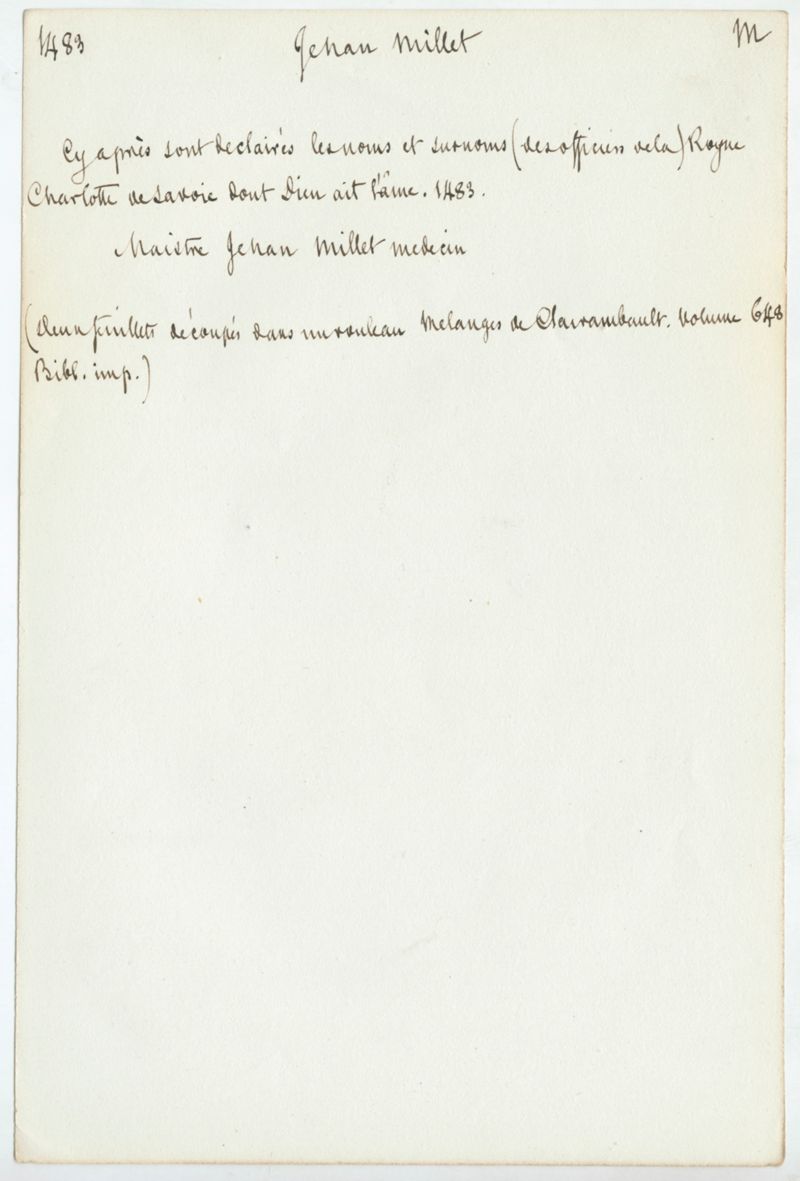 1483 Jehan Millet M
Cy après sont declairés les noms et surnoms (des officiers de la) Royne
Charlotte de Savoie dont Dieu ait l'âme. 1483.
Maistre Jehan Millet medecin
(Deux feuillets découpés dans un rouleau Melanges de Clairambault. Volume 648
Bibl. imp.)